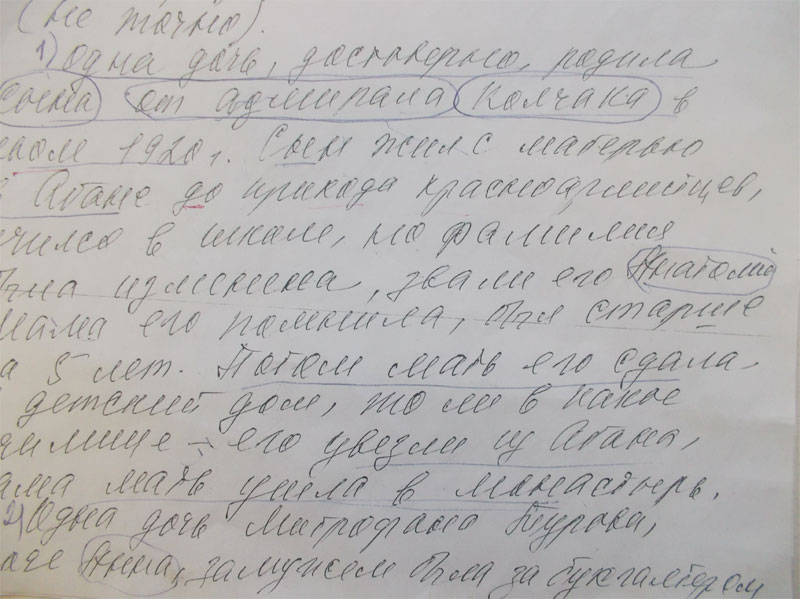 (не точно).
1) Одна дочь, достоверно, родила
сына от адмирала Колчака в
1920 г. Сын жил с матерью
в Абане до прихода красноармейцев,
учился в школе, но фамилия
была изменена, звали его Анатолий
Мама его помнила, был старше
на 5 лет. Потом мать его сдала
детский дом, то ли в какое
училище – его увезли из Абана,
сама мать ушла в монастырь.
2) Одна дочь Митрофана Турова,
Анна, замужем была за бухгалтером